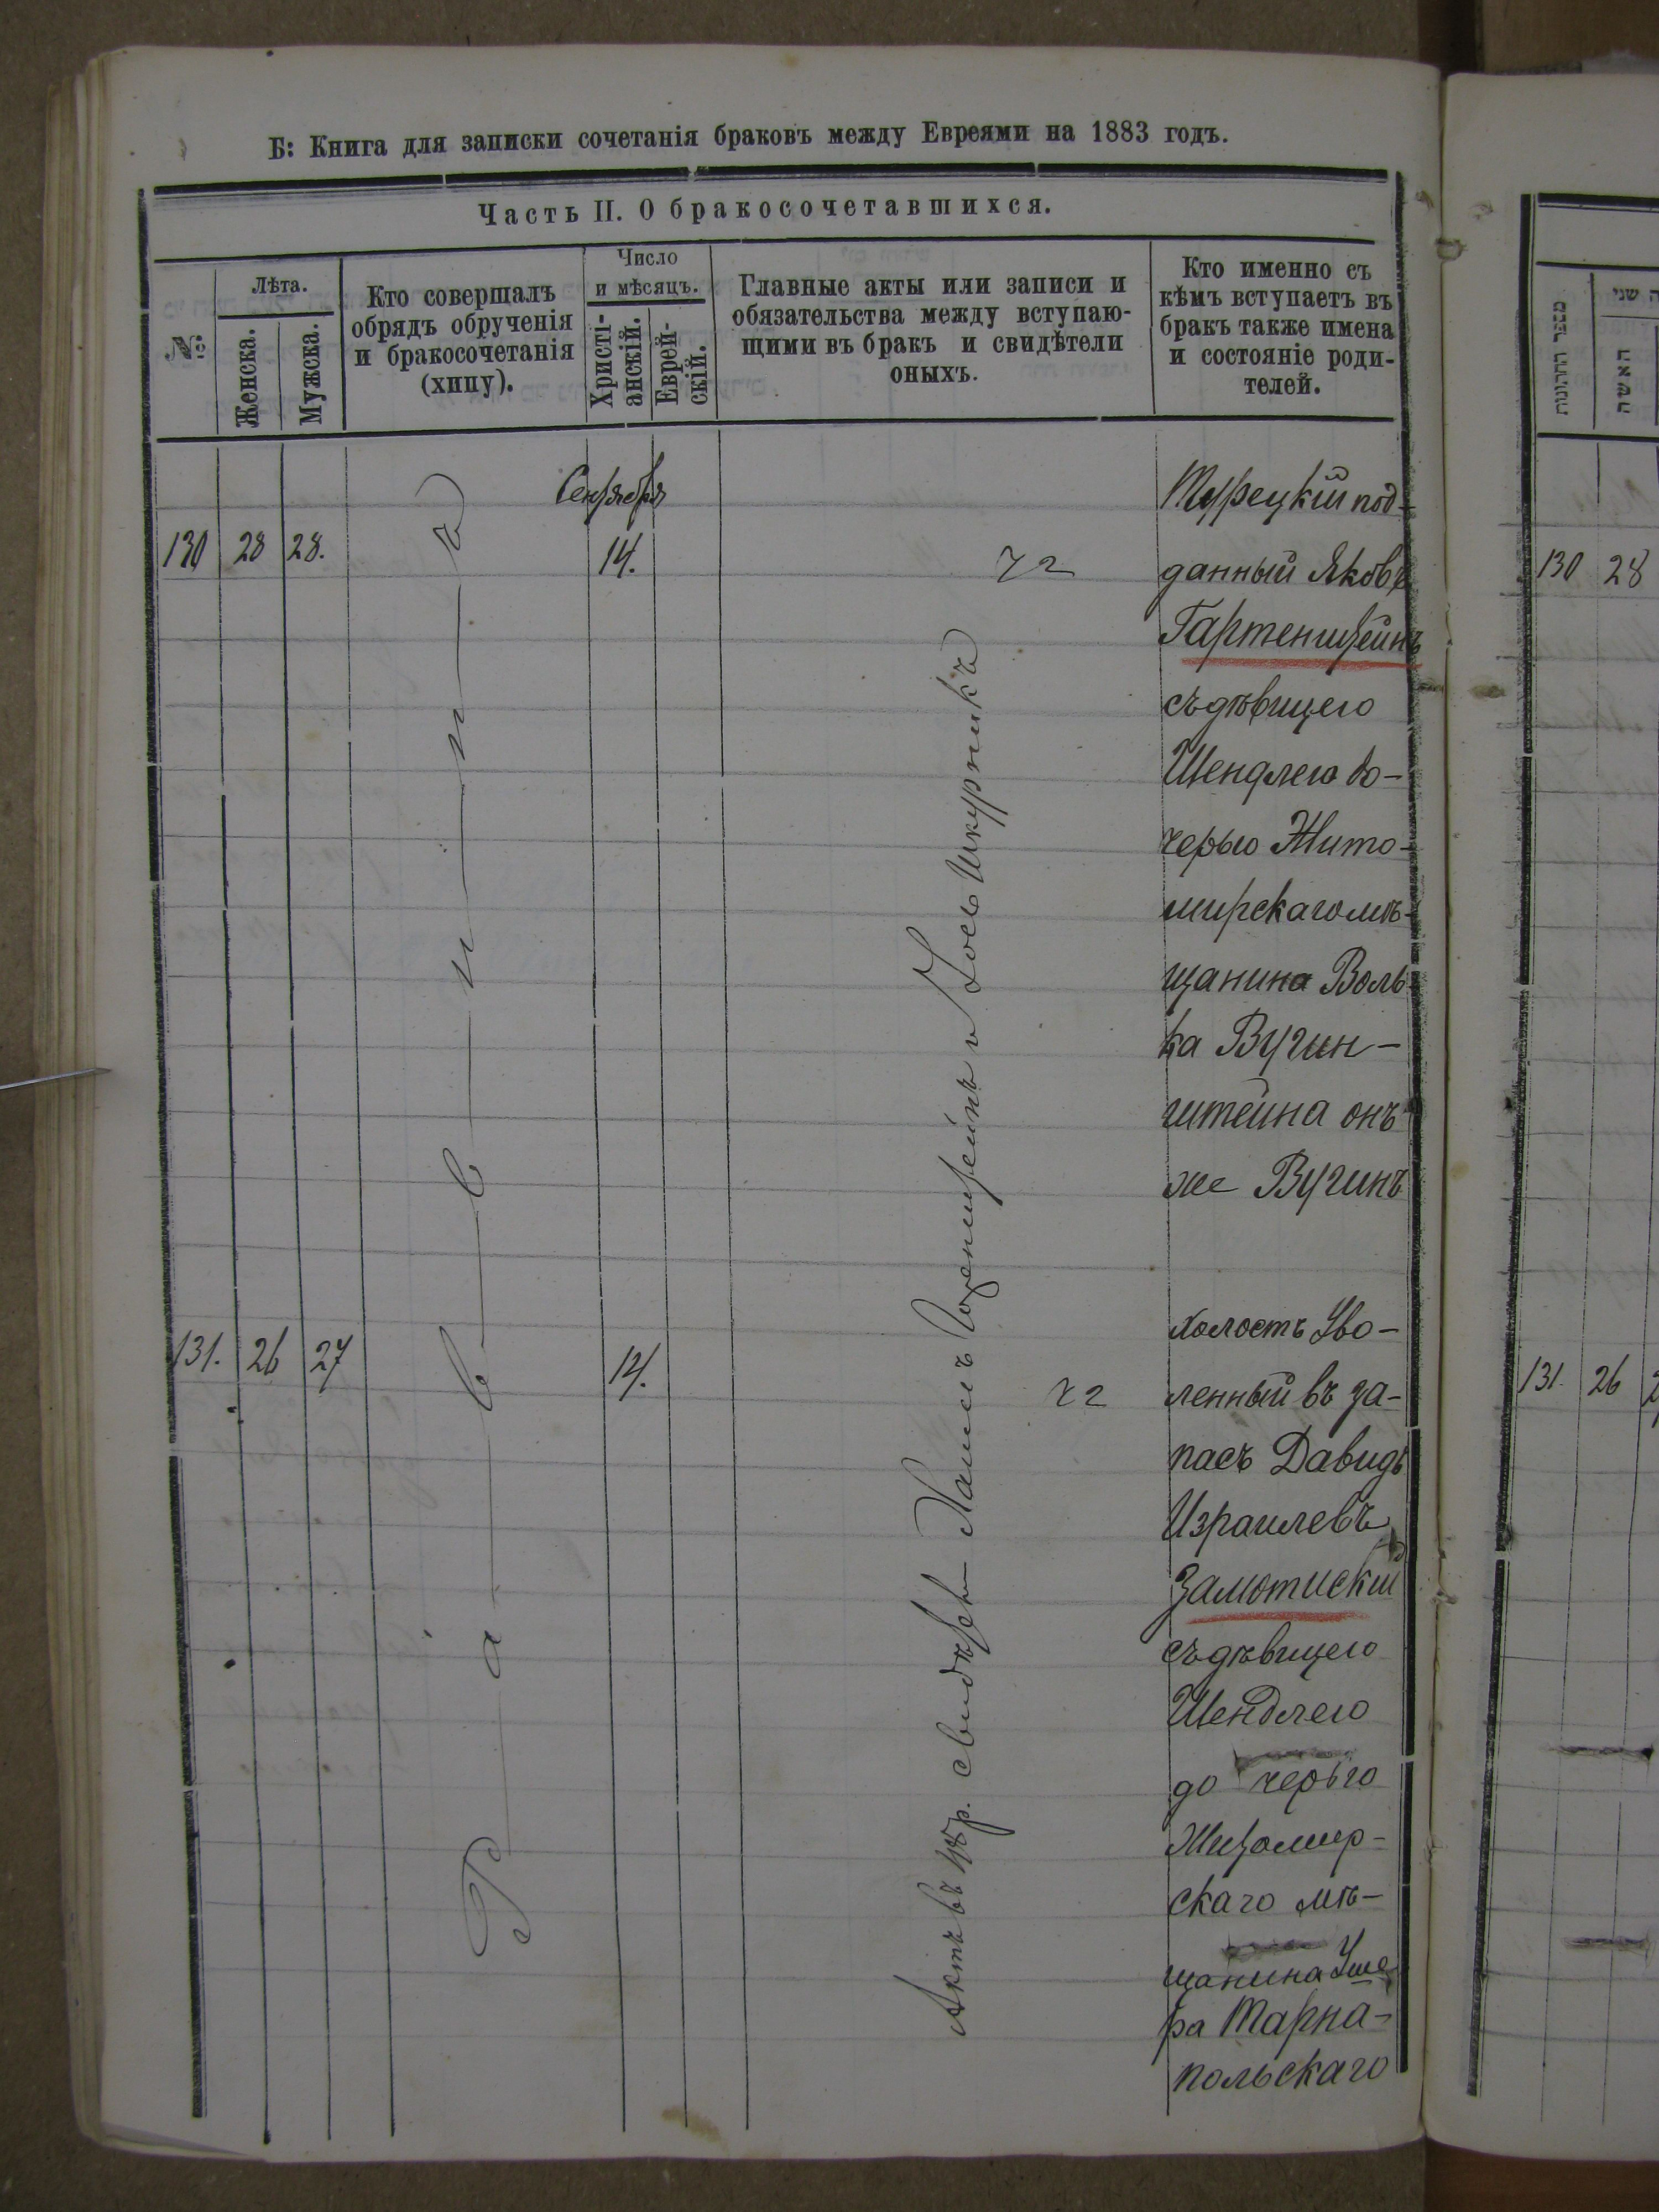 Б: Книга для записки сочетанія браковъ между Евреями на 1883 годъ.
Часть II. О бракосочетавшихся.
№
Лѣта.
Женска.
Мужска.
Кто совершалъ
обрядъ обрученія
и бракосочетанія
(хипу).
Число
и мѣсяцъ.
Христі-
анскій.
Еврей-
скій.
Главные акты или записи и
обязательства между вступаю-
щими въ бракъ и свидѣтели
оныхъ.
Кто именно съ
кѣмъ вступаетъ въ
бракъ также имена
и состояніе роди-
телей.
Сентября
130 28 28. 14.
Раввинъ
Актъ въ свидѣтели и Шкурникъ
Турецкій под-
данный Яковъ
Гартенштейнъ
съ дѣвицею
Шендлею до-
черью Жито-
мирскаго мѣ-
щанина Воль
ка Вугин-
штейна онъ
же Вугинъ
131. 26 27 14.
холостъ Уво-
ленный въ за-
пасъ Давидъ
Израилевъ
Замотискій
съ дѣвицею
Шендлею
до черью
Житомир-
скаго мѣ-
щанина Уше
ра Тарна-
польскаго
מספר החתונות
האשה
130 28
131. 26